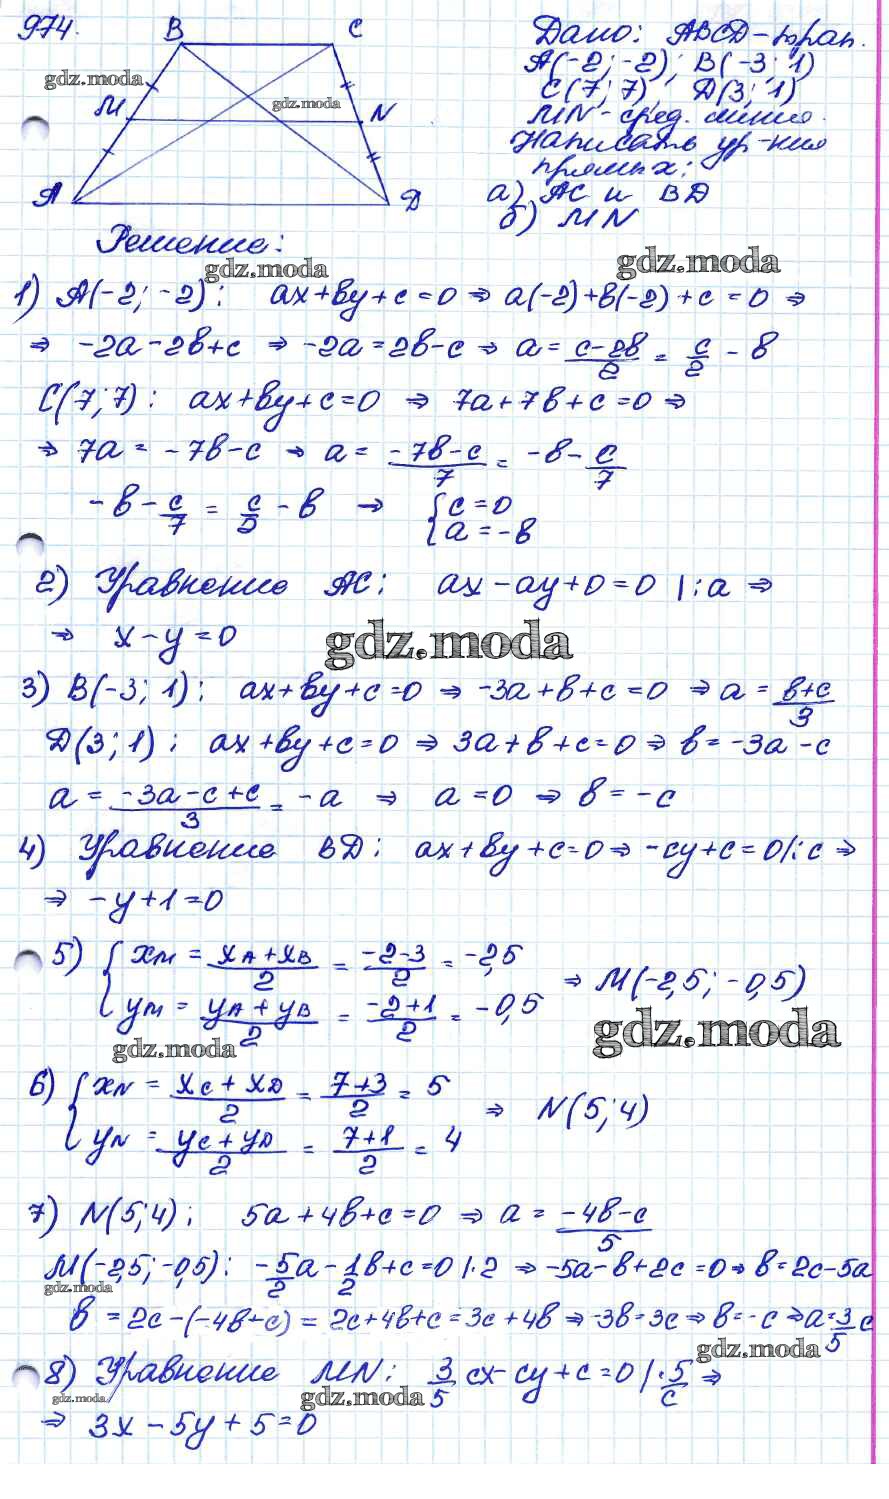 974.
B C
M N
A D
Дано: ABCD-трап.
A(-2; -2); B(-3; 1)
C(7; 7) D(3; 1)
MN-сред. линия.
Написать ур-ния
прямых:
а) AC и BD
б) MN
Решение:
1) A(-2; -2): ax+by+c=0 ⇒ a(-2)+b(-2)+c=0 ⇒
⇒ -2a-2b+c ⇒ -2a=2b-c ⇒ a= (c-2b)/2 = c/2 - b
C(7; 7): ax+by+c=0 ⇒ 7a+7b+c=0 ⇒
⇒ 7a = -7b-c ⇒ a = (-7b-c)/7 = -b- c/7
-b- c/7 = c/2 -b ⇒ { c=0
a=-b
2) Уравнение AC: ax-ay+0=0 |:a ⇒
⇒ x-y=0
3) B(-3; 1); ax+by+c=0 ⇒ -3a+b+c=0 ⇒ a= (b+c)/3
D(3; 1); ax+by+c=0 ⇒ 3a+b+c=0 ⇒ b=-3a-c
a= (-3a-c+c)/3 = -a ⇒ a=0 ⇒ b=-c
4) Уравнение BD: ax+by+c=0 ⇒ -cy+c=0/:c ⇒
⇒ -y+1=0
5) { xM = (xA+xB)/2 = (-2-3)/2 = -2,5
yM = (yA+yB)/2 = (-2+1)/2 = -0,5 ⇒ M(-2,5; -0,5)
6) { xN = (xC+xD)/2 = (7+3)/2 = 5
yN = (yC+yD)/2 = (7+1)/2 = 4 ⇒ N(5; 4)
7) N(5; 4); 5a+4b+c=0 ⇒ a= (-4b-c)/5
M(-2,5; -0,5): -5/2 a - 1/2 b+c=0 |·2 ⇒ -5a-b+2c=0 ⇒ b=2c-5a
b = 2c-(-4b+c) = 2c+4b+c=3c+4b ⇒ -3b=3c ⇒ b=-c ⇒ a= 3/5 c
8) Уравнение MN: 3/5 cx-cy+c=0 |· 5/c ⇒
⇒ 3x-5y+5=0
gdz.moda
gdz.moda
gdz.moda
gdz.moda
gdz.moda
gdz.moda
gdz.moda
gdz.moda
gdz.moda
gdz.moda
gdz.moda